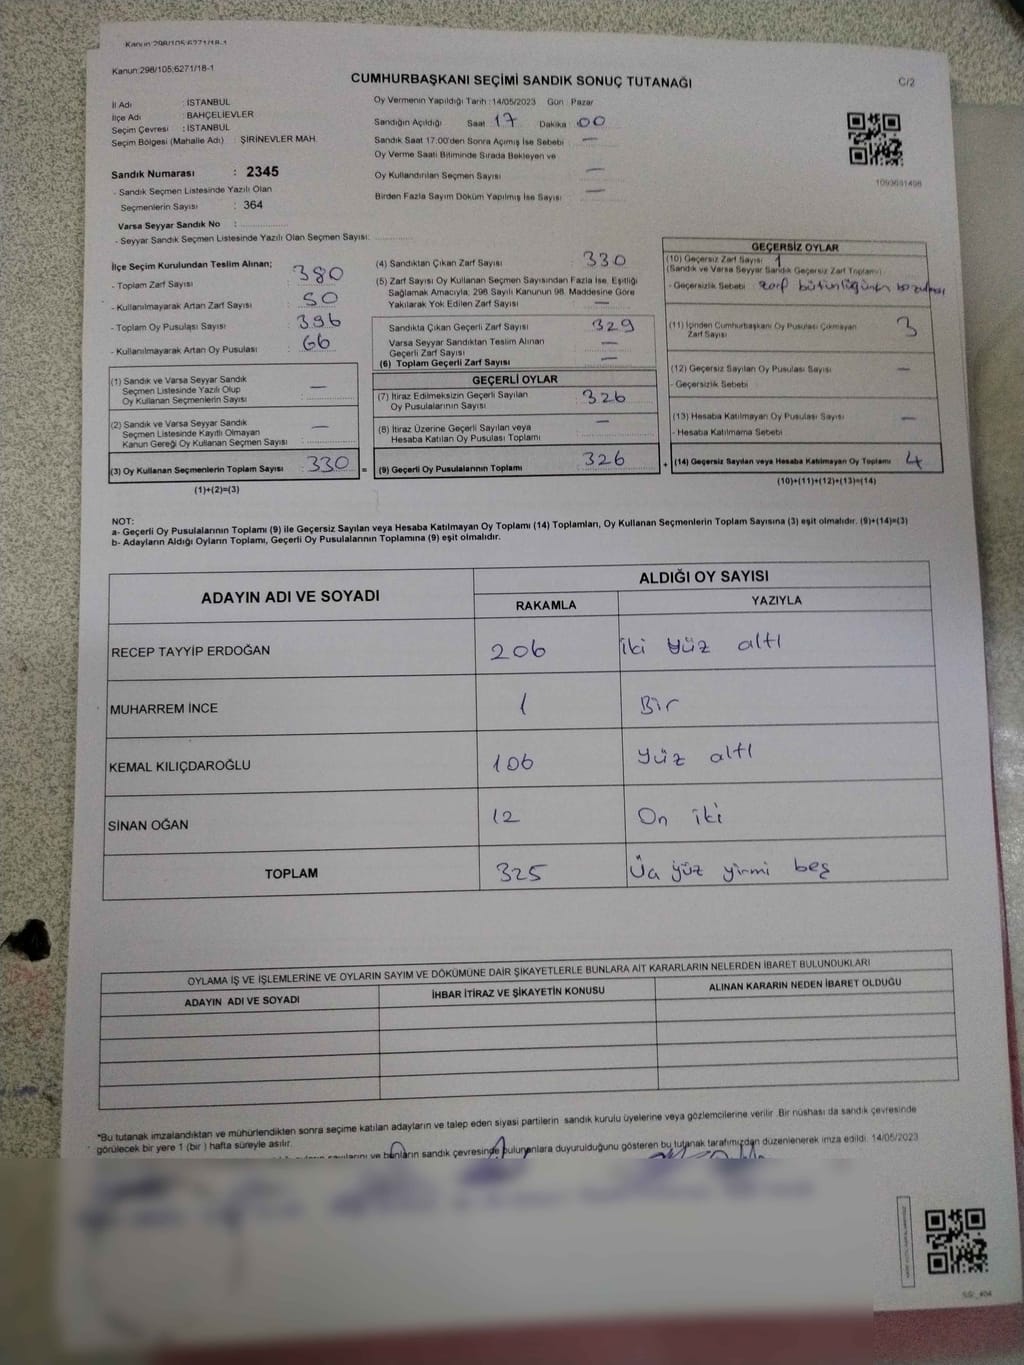 Kanun:298/105;6271/18-1
Kanun:298/105;6271/18-1
CUMHURBAŞKANI SEÇİMİ SANDIK SONUÇ TUTANAĞI
C/2
İl Adı : İSTANBUL
İlçe Adı : BAHÇELİEVLER
Seçim Çevresi : İSTANBUL
Seçim Bölgesi (Mahalle Adı) : ŞİRİNEVLER MAH.
Sandık Numarası : 2345
- Sandık Seçmen Listesinde Yazılı Olan
Seçmenlerin Sayısı : 364
Varsa Seyyar Sandık No :
- Seyyar Sandık Seçmen Listesinde Yazılı Olan Seçmen Sayısı:
Oy Vermenin Yapıldığı Tarih :14/05/2023 Gün : Pazar
Sandığın Açıldığı Saat 17 Dakika :00
Sandık Saat 17:00'den Sonra Açılmış İse Sebebi —
Oy Verme Saati Bitiminde Sırada Bekleyen ve
Oy Kullandırılan Seçmen Sayısı —
Birden Fazla Sayım Döküm Yapılmış İse Sayısı —
1093691498
İlçe Seçim Kurulundan Teslim Alınan;
- Toplam Zarf Sayısı : 380
- Kullanılmayarak Artan Zarf Sayısı : 50
- Toplam Oy Pusulası Sayısı : 396
- Kullanılmayarak Artan Oy Pusulası : 66
(1) Sandık ve Varsa Seyyar Sandık
Seçmen Listesinde Yazılı Olup
Oy Kullanan Seçmenlerin Sayısı : —
(2) Sandık ve Varsa Seyyar Sandık
Seçmen Listesinde Kayıtlı Olmayan
Kanun Gereği Oy Kullanan Seçmen Sayısı : —
(3) Oy Kullanan Seçmenlerin Toplam Sayısı : 330 =
(1)+(2)=(3)
(4) Sandıktan Çıkan Zarf Sayısı : 330
(5) Zarf Sayısı Oy Kullanan Seçmen Sayısından Fazla İse, Eşitliği
Sağlamak Amacıyla, 298 Sayılı Kanunun 98. Maddesine Göre
Yakılarak Yok Edilen Zarf Sayısı : —
Sandıkta Çıkan Geçerli Zarf Sayısı : 329
Varsa Seyyar Sandıktan Teslim Alınan
Geçerli Zarf Sayısı : —
(6) Toplam Geçerli Zarf Sayısı : —
GEÇERLİ OYLAR
(7) İtiraz Edilmeksizin Geçerli Sayılan
Oy Pusulalarının Sayısı : 326
(8) İtiraz Üzerine Geçerli Sayılan veya
Hesaba Katılan Oy Pusulası Toplamı : —
(9) Geçerli Oy Pusulalarının Toplamı : 326 +
GEÇERSİZ OYLAR
(10) Geçersiz Zarf Sayısı : 1
(Sandık ve Varsa Seyyar Sandık Geçersiz Zarf Toplamı)
- Geçersizlik Sebebi : zarf bütünlüğünün bozulması
(11) İçinden Cumhurbaşkanı Oy Pusulası Çıkmayan
Zarf Sayısı 3
(12) Geçersiz Sayılan Oy Pusulası Sayısı —
- Geçersizlik Sebebi
(13) Hesaba Katılmayan Oy Pusulası Sayısı —
- Hesaba Katılmama Sebebi
(14) Geçersiz Sayılan veya Hesaba Katılmayan Oy Toplamı 4
(10)+(11)+(12)+(13)=(14)
NOT:
a- Geçerli Oy Pusulalarının Toplamı (9) ile Geçersiz Sayılan veya Hesaba Katılmayan Oy Toplamı (14) Toplamları, Oy Kullanan Seçmenlerin Toplam Sayısına (3) eşit olmalıdır. (9)+(14)=(3)
b- Adayların Aldığı Oyların Toplamı, Geçerli Oy Pusulalarının Toplamına (9) eşit olmalıdır.
ADAYIN ADI VE SOYADI
ALDIĞI OY SAYISI
RAKAMLA YAZIYLA
RECEP TAYYİP ERDOĞAN 206 iki yüz altı
MUHARREM İNCE 1 Bir
KEMAL KILIÇDAROĞLU 106 yüz altı
SİNAN OĞAN 12 On iki
TOPLAM 325 Üç yüz yirmi beş
OYLAMA İŞ VE İŞLEMLERİNE VE OYLARIN SAYIM VE DÖKÜMÜNE DAİR ŞİKAYETLERLE BUNLARA AİT KARARLARIN NELERDEN İBARET BULUNDUKLARI
ADAYIN ADI VE SOYADI İHBAR İTİRAZ VE ŞİKAYETİN KONUSU ALINAN KARARIN NEDEN İBARET OLDUĞU
*Bu tutanak imzalandıktan ve mühürlendikten sonra seçime katılan adayların ve talep eden siyasi partilerin sandık kurulu üyelerine veya gözlemcilerine verilir. Bir nüshası da sandık çevresinde
görülecek bir yere 1 (bir ) hafta süreyle asılır.
sayılarını ve bunların sandık çevresinde bulunanlara duyurulduğunu gösteren bu tutanak tarafımızdan düzenlenerek imza edildi. 14/05/2023